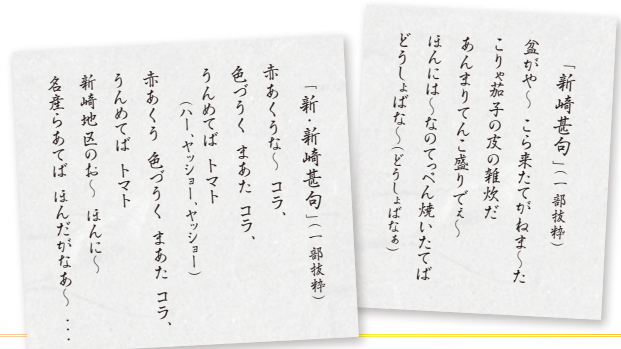 「新崎甚句」(一部抜粋)
盆がや〜 こら来たてがねま〜た
こりゃ茄子の皮の雑炊だ
あんまりてんこ盛りでぇ〜
ほんには〜なのてっぺん焼いたてば
どうしょばな〜(どうしょばなぁ)
「新・新崎甚句」(一部抜粋)
赤あくうな〜 コラ、
色づうく まあた コラ、
うんめてば トマト
(ハー、ヤッショー、ヤッショー)
赤あくう 色づうく まあた コラ、
うんめてば トマト
新崎地区のお〜 ほんに〜
名産らあてば ほんだがなあ〜 ・・・